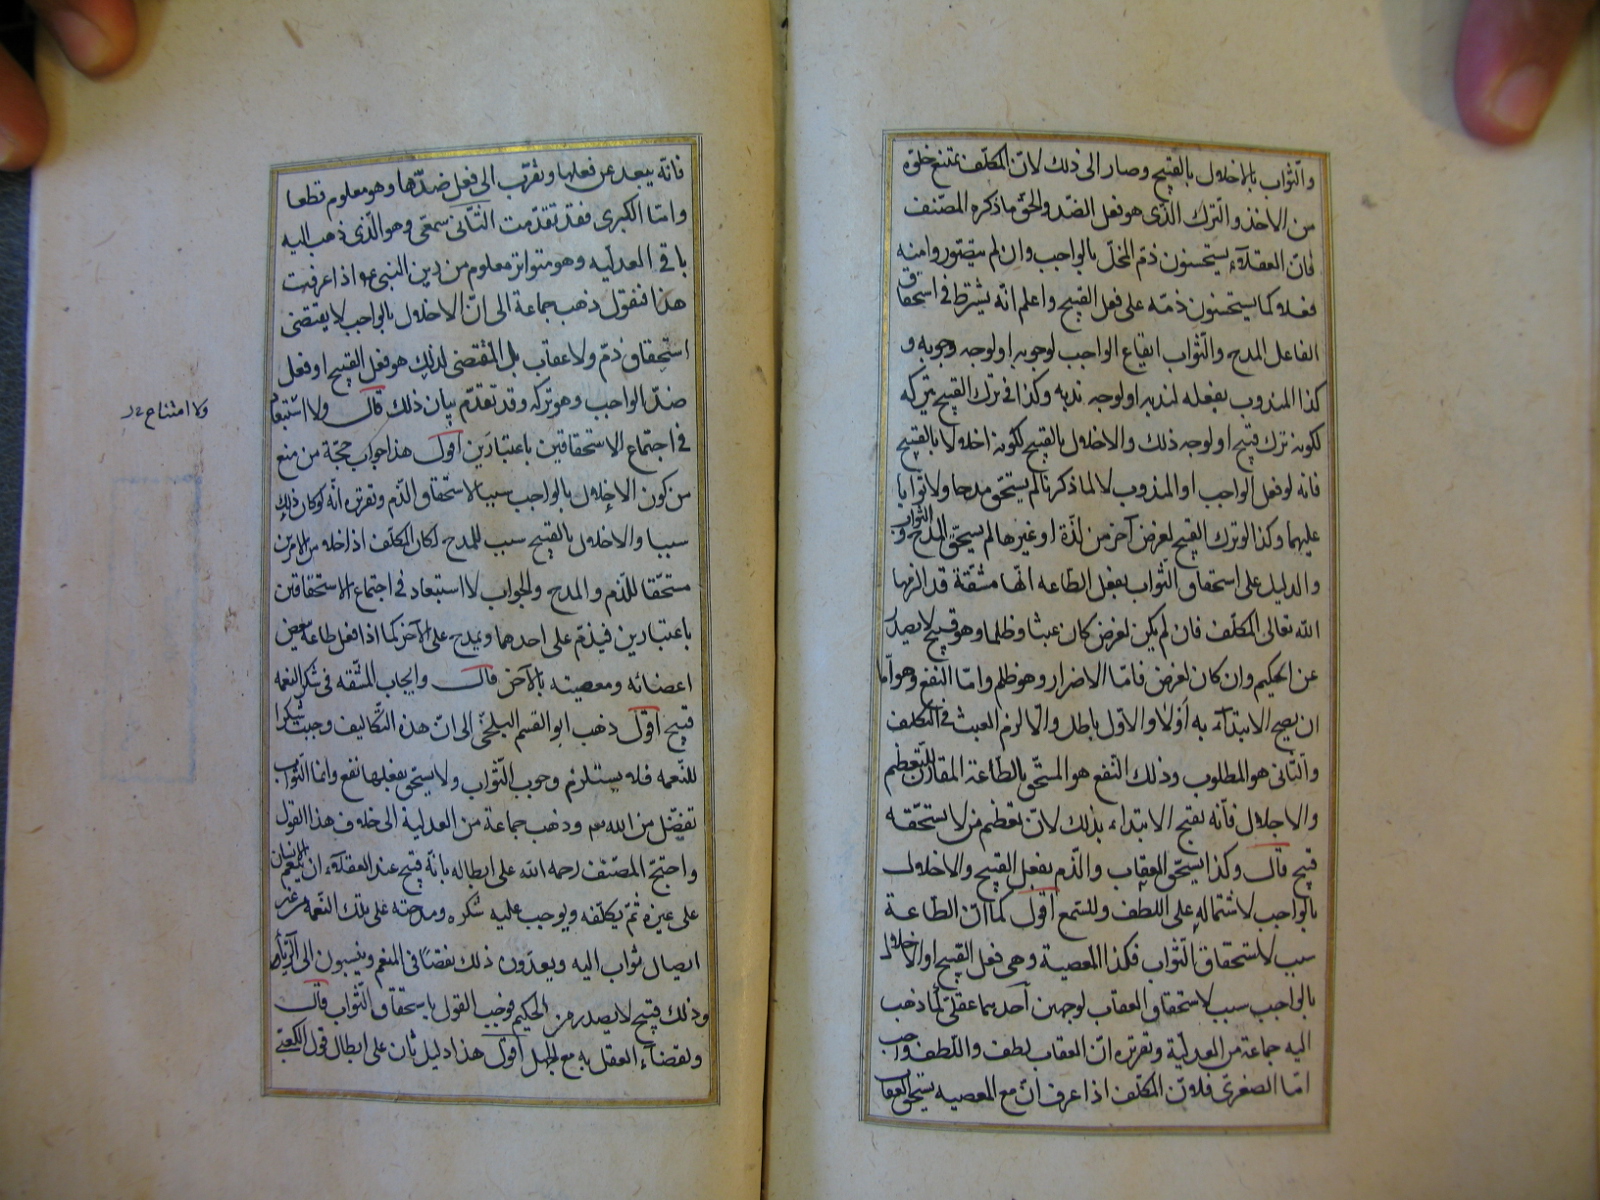 والثواب بالاخلال بالقبيح وصار الى ذلك لان المكلف يمتنع خلوّه
من الاخذ والترك الذى هو فعل الضد والحق ما ذكره المصنف
فان العقلاء يستحسنون ذم المخل بالواجب وان لم يتصوروا منه
فعلا كما يستحسنون ذمه على فعل القبيح واعلم انه يشترط فى استحقاق
الفاعل المدح والثواب ايقاع الواجب لوجوبه او لوجه وجوبه و
كذا المندوب بفعله لندبه او لوجه ندبه وكذا فى ترك القبيح يتركه
لكونه ترك قبيح او لوجه ذلك والاخلال بالقبيح لكونه اخلالا بالقبيح
فانه لو فعل الواجب او المندوب لا لما ذكرنا لم يستحق مدحا ولا ثوابا
عليهما وكذا لو ترك القبيح لغرض آخر من لذة او غيرها لم يستحق المدح و الثواب
والدليل على استحقاق الثواب بفعل الطاعه انها مشقة قد الزمها
الله تعالى المكلف فان لم يكن لغرض كان عبثا وظلما وهو قبيح لا يصدر
عن الحكيم وان كان لغرض فاما الاضرار وهو ظلم واما النفع وهو اما
ان يصح الابتداء به اولا والاول باطل والا لزم العبث فى التكلف
والثانى هو المطلوب وذلك النفع هو المستحق بالطاعة المقارن للتعظيم
والاجلال فانه يقبح الابتداء بذلك لان تعظيم من لا يستحقه
قبيح قال وكذا يستحق العقاب والذم بفعل القبيح والاخلال
بالواجب لاشتماله على اللطف وللسمع اقول كما ان الطاعة
سبب لاستحقاق الثواب فكذا المعصية وهى فعل القبيح او الاخلال
بالواجب سبب لاستحقاق العقاب لوجهين احدهما عقلى كما ذهب
اليه جماعة من العدلية وتقريره ان العقاب لطف واللطف واجب
اما الصغرى فلان المكلف اذا عرف ان مع المعصيه يستحق العقاب
فانه يبعد عن فعلها ويقرب الى فعل ضدها وهو معلوم قطعا
واما الكبرى فقد تقدمت الثانى سمعى وهو الذى ذهب اليه
باقى العدليه وهو متواتر معلوم من دين النبى ع اذا عرفت
هذا فنقول ذهب جماعة الى ان الاخلال بالواجب لا يقتضى
استحقاق ذم ولا عقاب بل المقتضى لذلك هو فعل القبيح او فعل
ضد الواجب وهو تركه وقد تقدم بيان ذلك قال ولا استبعاد
ولا امتناع
فى اجتماع الاستحقاقين باعتبارين اقول هذا جواب حجة من منع
من كون الاخلال بالواجب سببا لاستحقاق الذم وتقريره انه لو كان ذلك
سببا والاخلال بالقبيح سبب للمدح لكان المكلف اذا خلا من الامرين
مستحقا للذم والمدح والجواب لا استبعاد فى اجتماع الاستحقاقين
باعتبارين فيذم على احدهما ويمدح على الآخر كما اذا فعل طاعة ببعض
اعضائه ومعصيته بالآخر قال وايجاب المشقه فى شكر النعمه
قبيح اقول ذهب ابو القسم البلخى الى ان هذه التكاليف وجبت شكرا
للنعمه فلا يستلزم وجوب الثواب ولا يستحق بفعلها نفع وانما الثواب
تفضل من الله تعم وذهب جماعة من العدلية الى خلاف هذا القول
واحتج المصنف رحمه الله على ابطاله بانه قبيح عند العقلاء ان ينعم الانسان
على غيره ثم يكلفه ويوجب عليه شكره ومدحته على تلك النعمه من غير
ايصال ثواب اليه ويعدون ذلك نقصا فى المنعم وينسبون الى الرياء
وذلك قبيح لا يصدر من الحكيم فوجب القول باستحقاق الثواب قال
ولقضاء العقل به مع الجهل اقول هذا دليل ثان على ابطال قول الكعبى